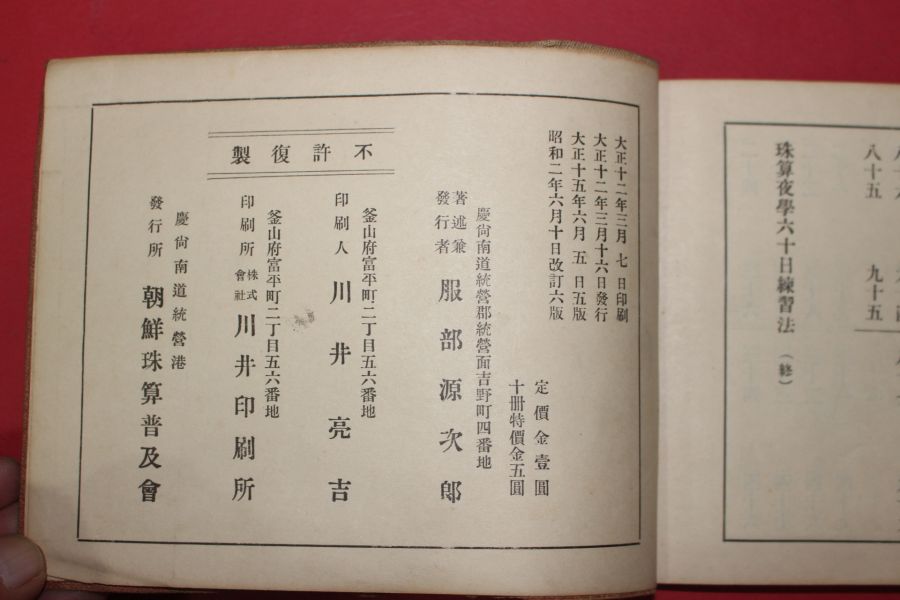 八十五　九十五
珠算夜學六十日練習法（終）
大正十二年三月七日印刷
大正十二年三月十六日發行
大正十五年六月五日五版
昭和二年六月十日改訂六版
定價金壹圓
十冊特價金五圓
慶尙南道統營郡統營面吉野町四番地
著述兼發行者　服部源次郎
不許復製
釜山府富平町二丁目五六番地
印刷人　川井亮吉
釜山府富平町二丁目五六番地
印刷所　株式會社　川井印刷所
慶尙南道統營港
發行所　朝鮮珠算普及會